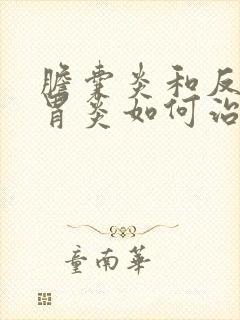 膽囊炎和反
胃炎如何治
童南華